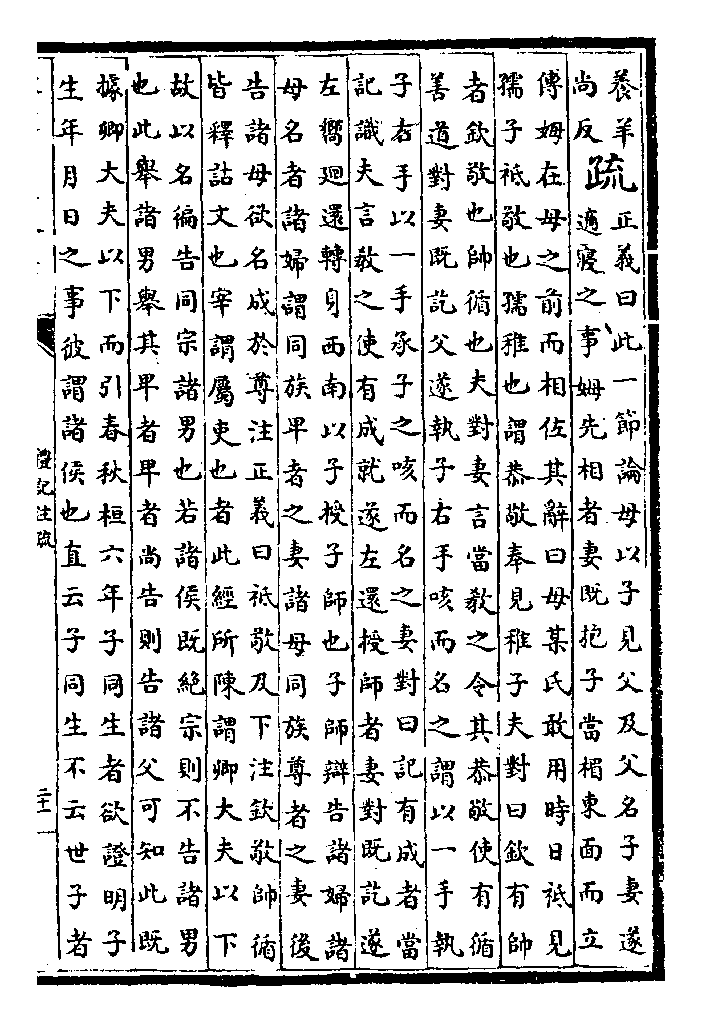 養羊
尚反
疏
正義曰此一節論母以子見父及父名子妻遂
適寢之事姆先相者妻既抱子當楣東面而立
傅姆在母之前而相佐其辭曰母某氏敢用時日祗見
孺子祗敬也孺稚也謂恭敬奉見稚子夫對曰欽有帥
者欽敬也帥循也夫對妻言當教之令其恭敬使有循
善道對妻既訖父遂執子右手咳而名之謂以一手執
子右手以一手承子之咳而名之妻對曰記有成者當
記識夫言教之使有成就遂左還授師者妻對既訖遂
左嚮廻還轉身西南以子授子師也子師辯告諸婦諸
母名者諸婦謂同族卑者之妻諸母同族尊者之妻後
告諸母欲名成於尊注正義曰祗敬及下注欽敬帥循
皆釋詁文也宰謂屬吏也者此經所陳謂卿大夫以下
故以名徧告同宗諸男也若諸侯既絶宗則不告諸男
也此舉諸男舉其卑者卑者尚告則告諸父可知此既
據卿大夫以下而引春秋桓六年子同生者欲證明子
生年月日之事彼謂諸侯也直云子同生不云世子者
禮記注疏